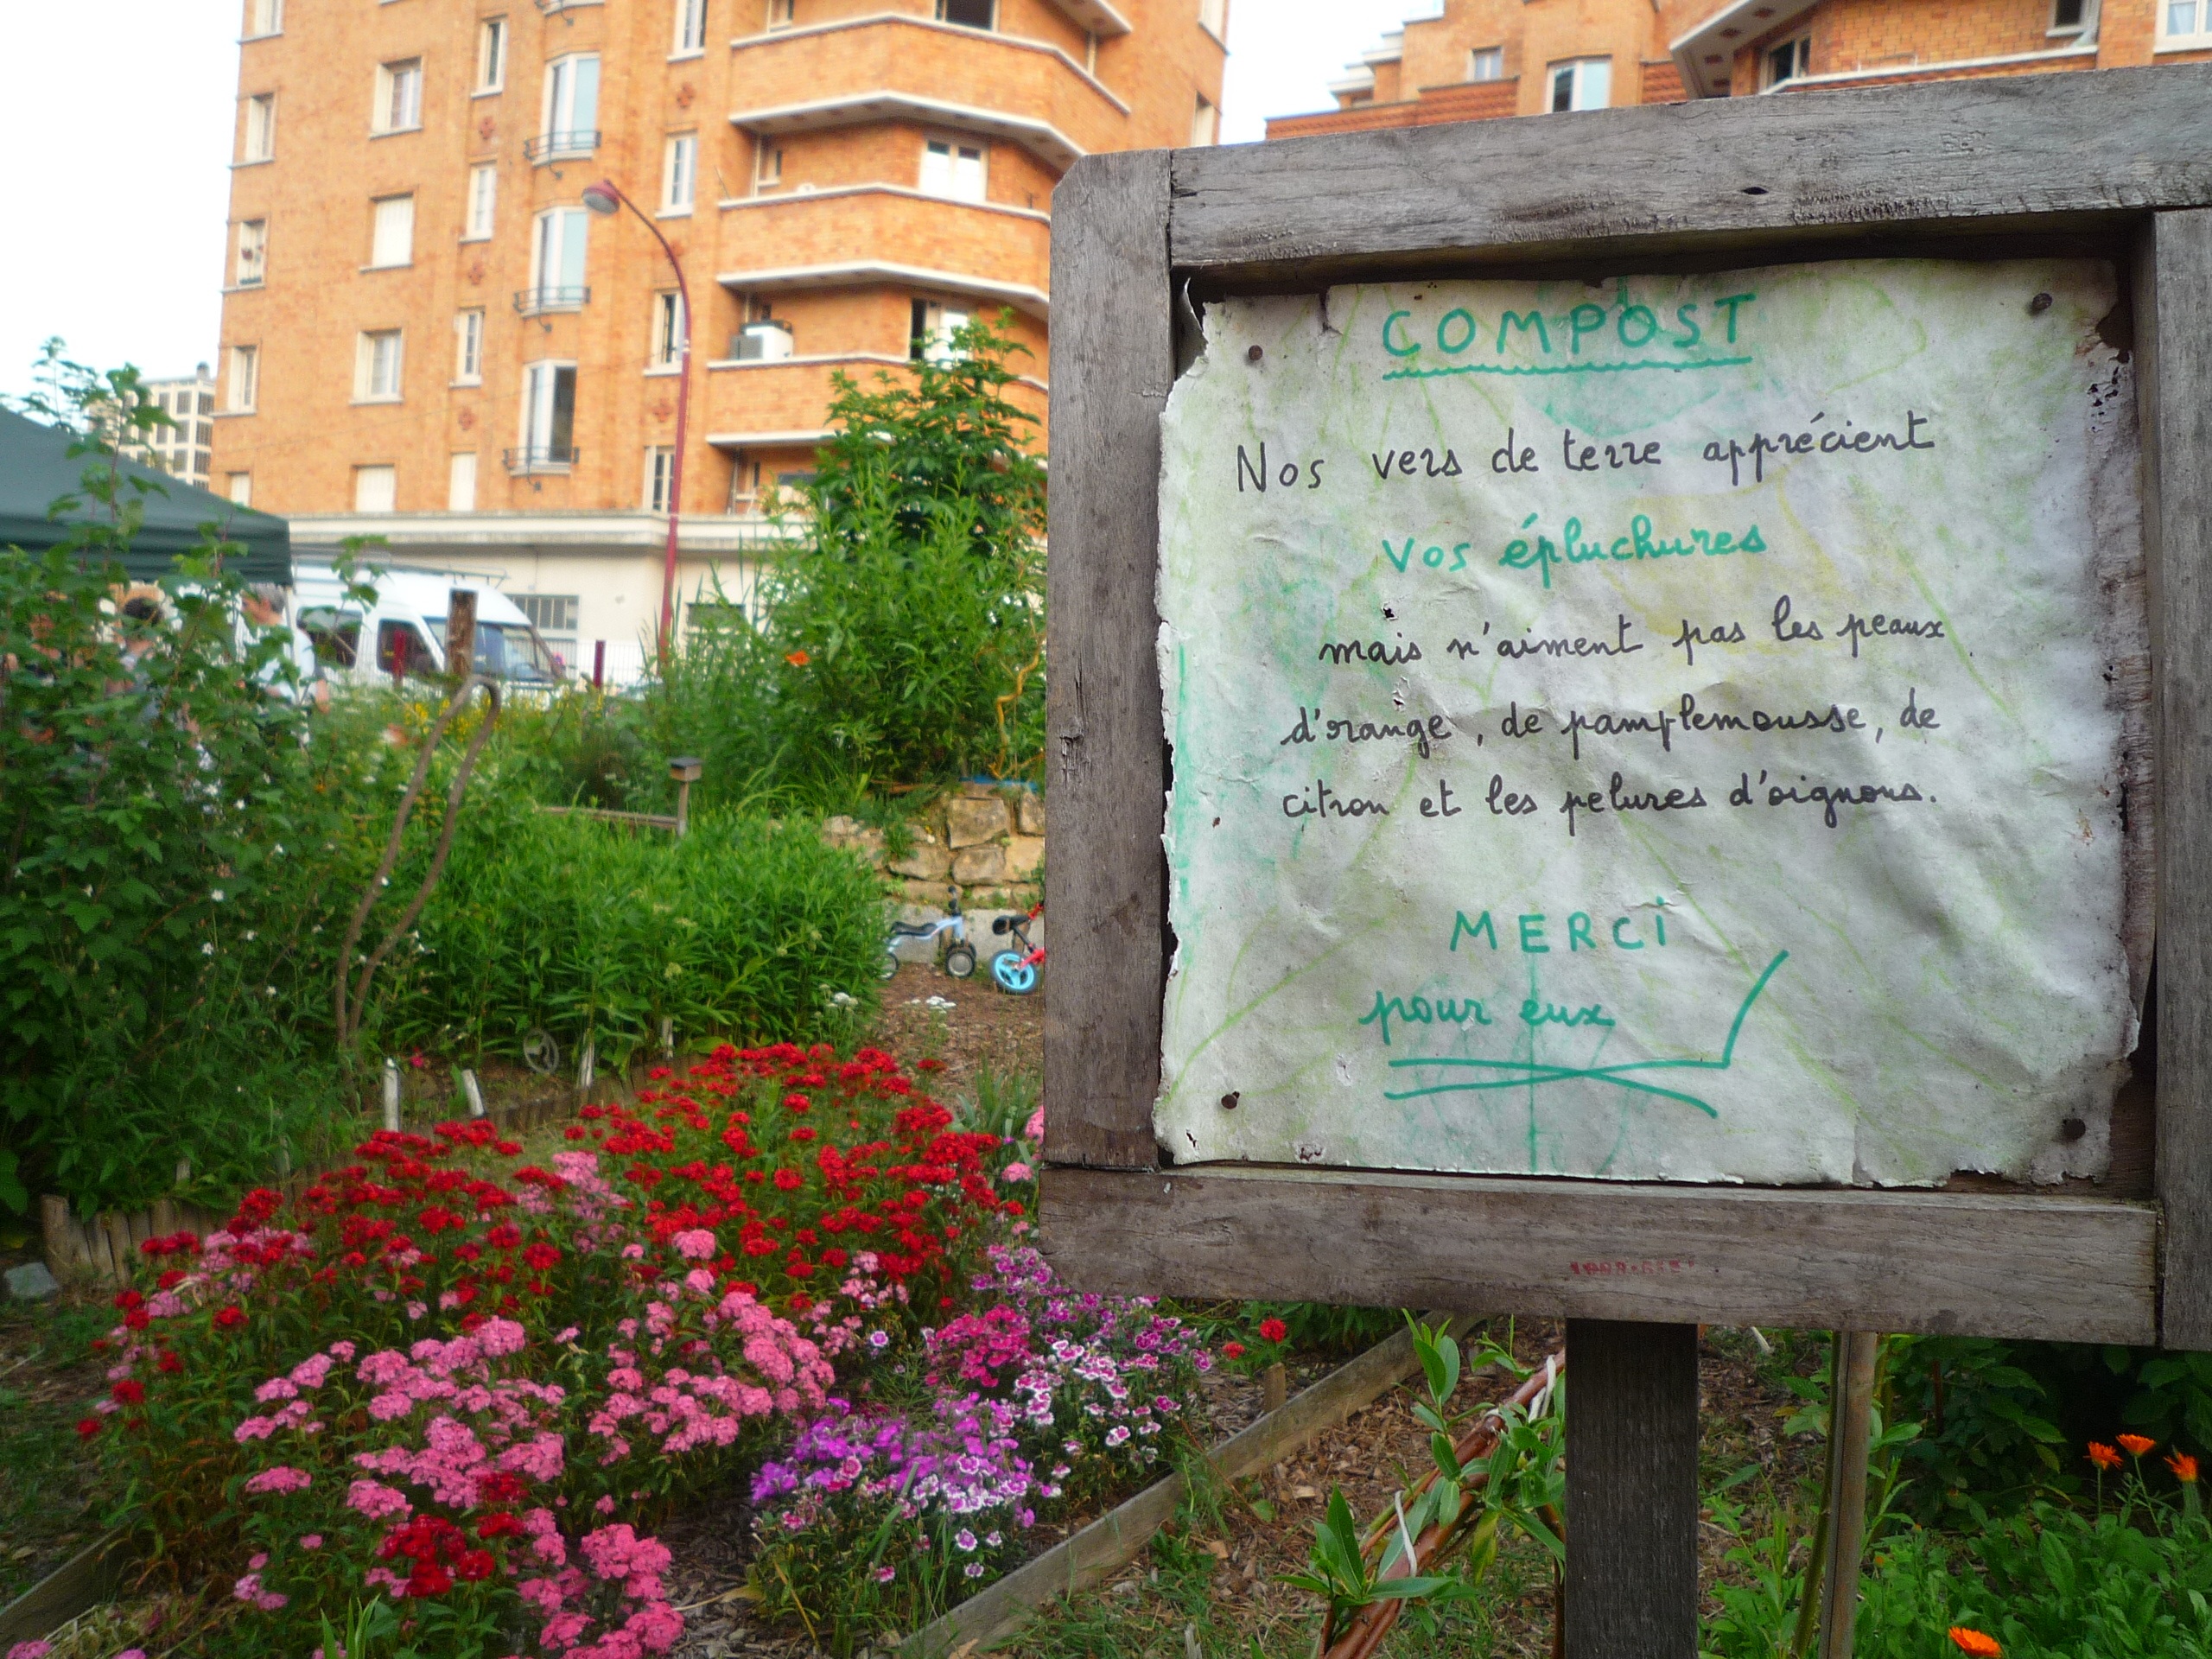 COMPOST
Nos vers de terre apprécient
vos épluchures
mais n'aiment pas les peaux
d'orange, de pamplemousse, de
citron et les pelures d'oignons.
MERCi
pour eux